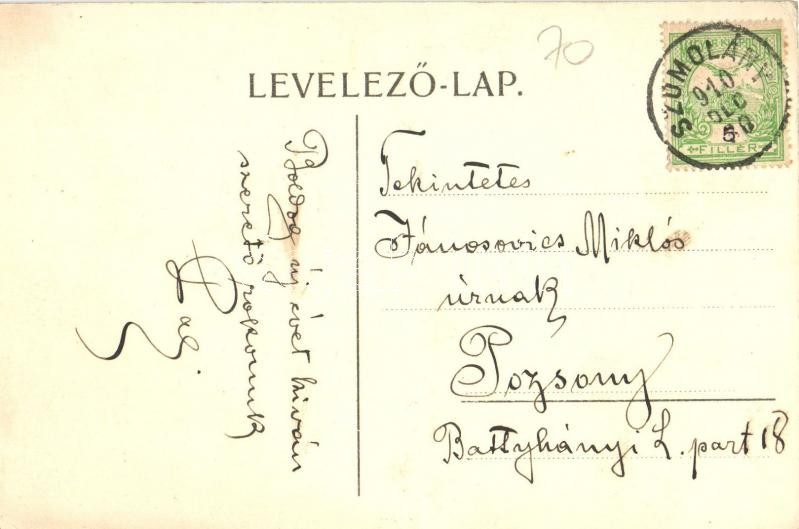 70
LEVELEZŐ-LAP.
SZUMOLÁNY
910
DEC
5
FILLÉR
Boldog új évet kiván
szerető rokonunk
Pál.
Tekintetes
Jánosovics Miklós
úrnak
Pozsony
Battyhányi L. part 18